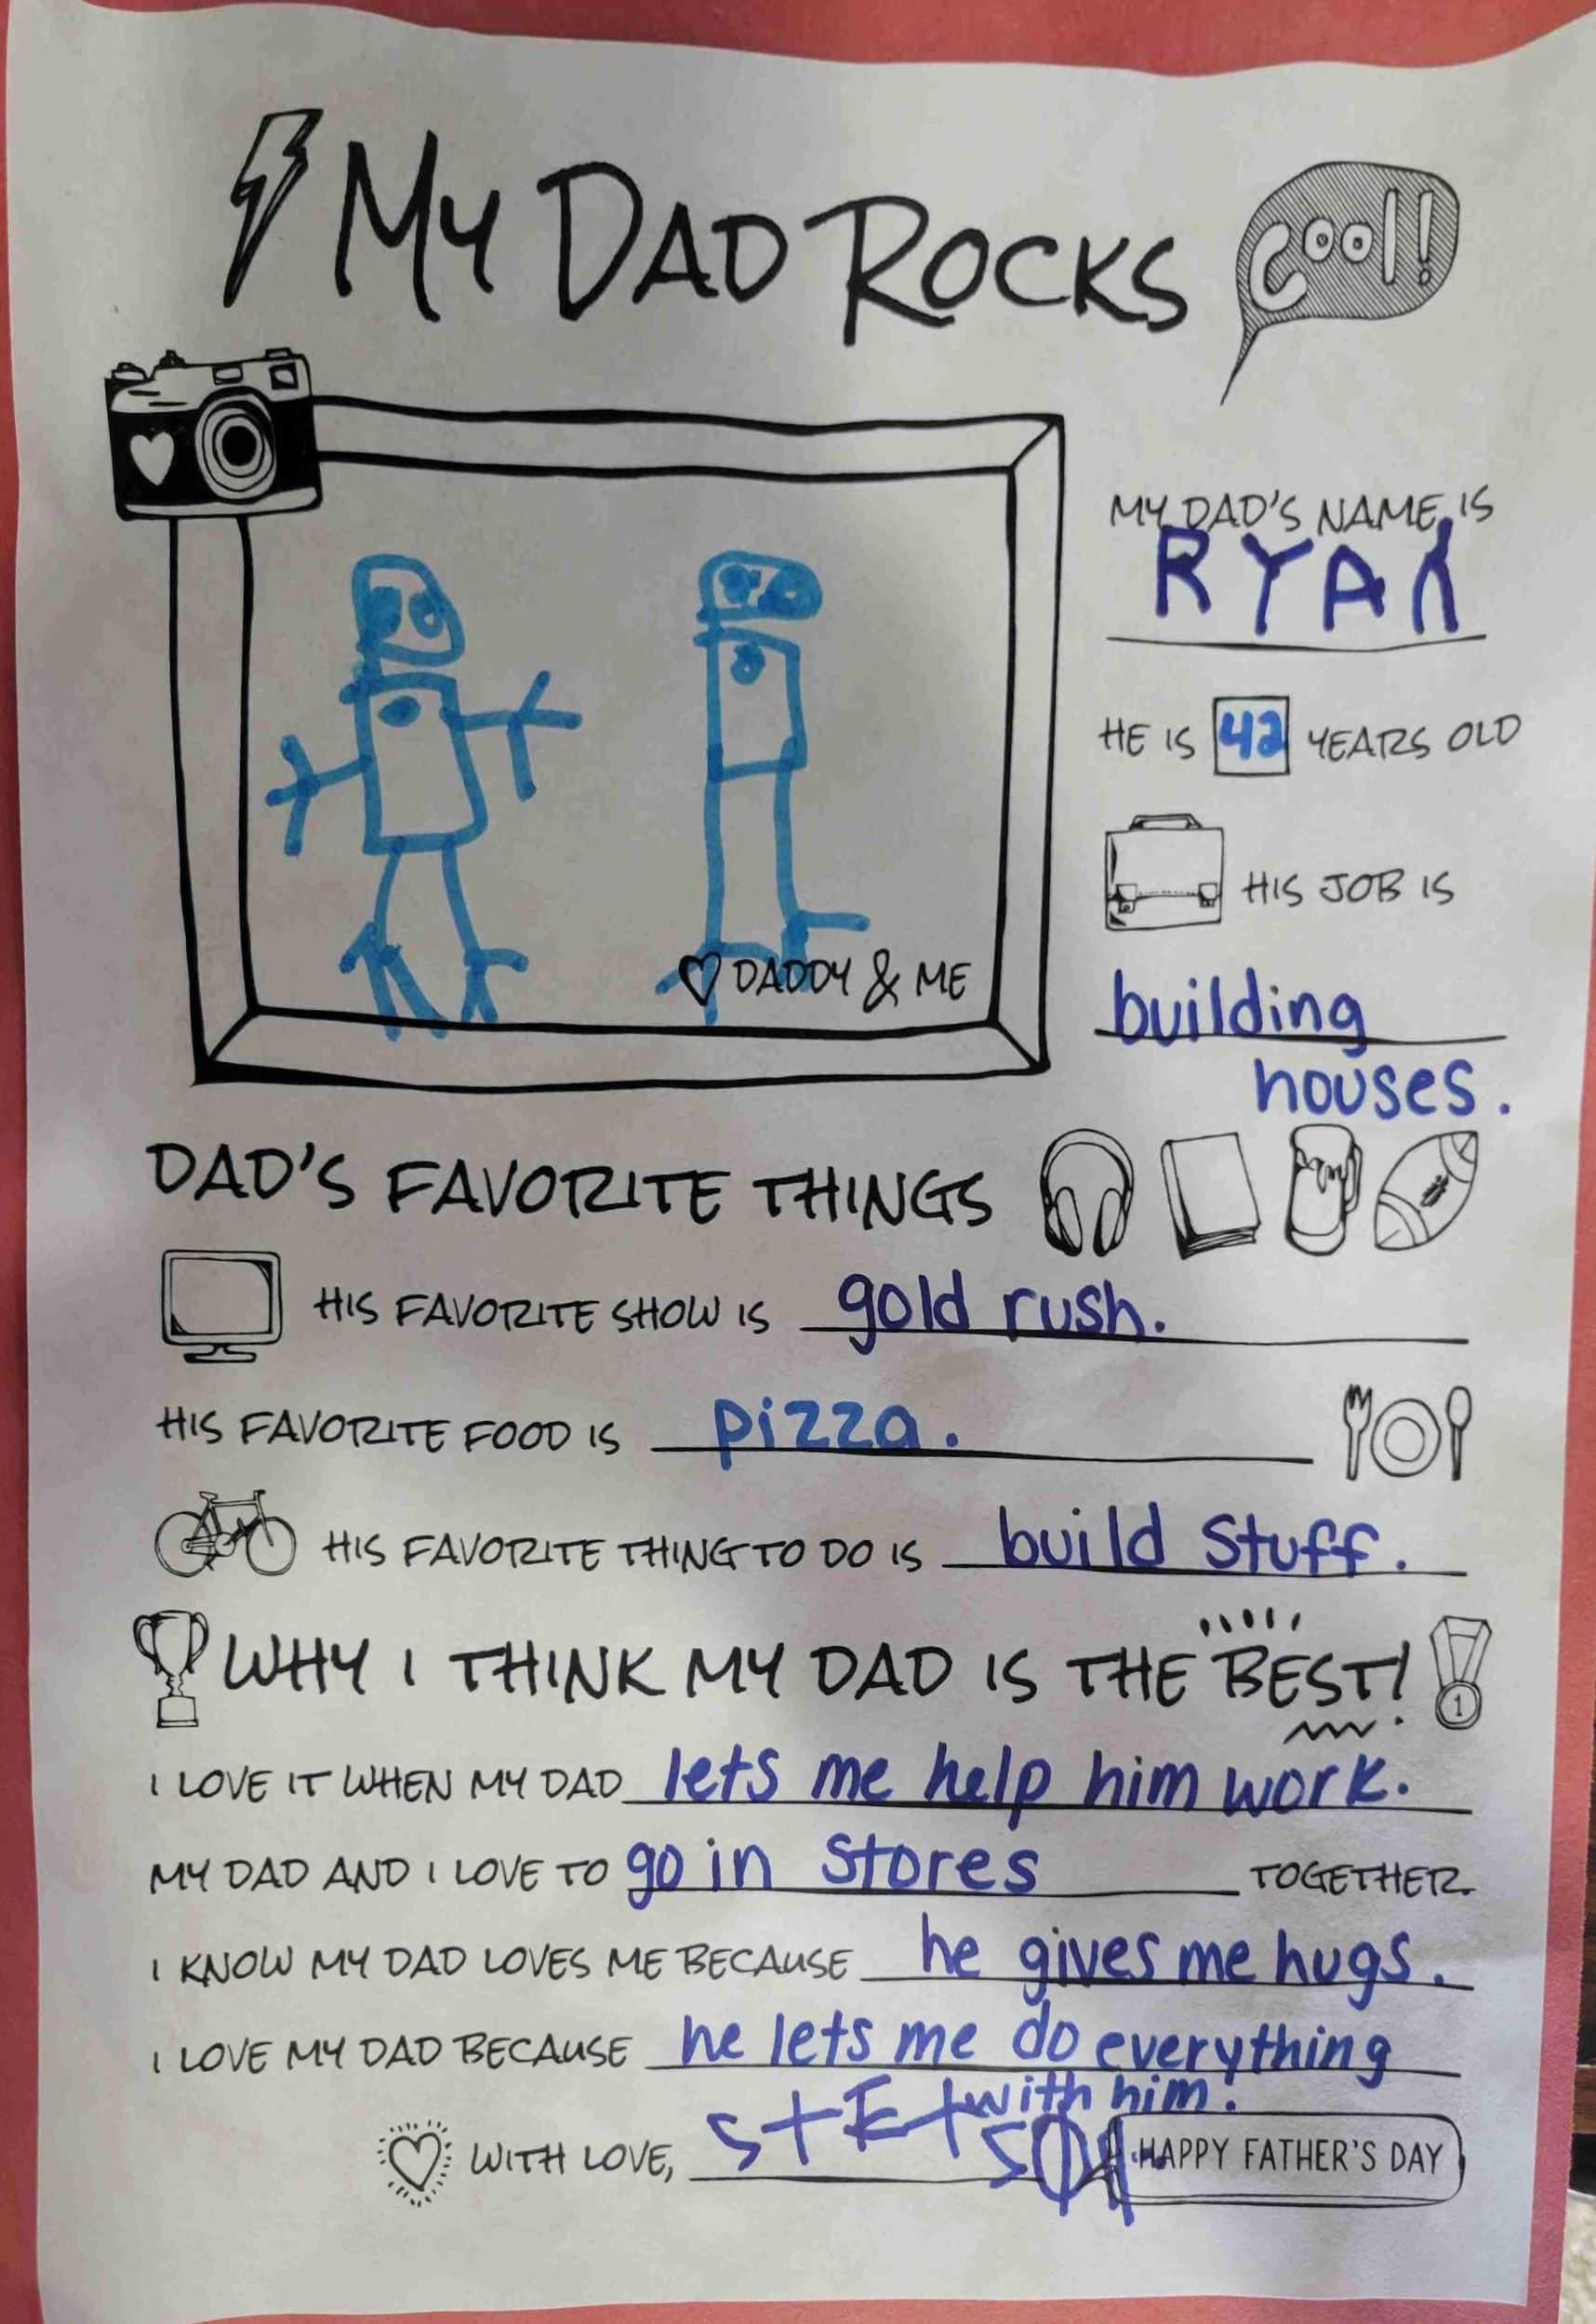 MY DAD ROCKS
Cool!
MY DAD'S NAME IS
RYAN
HE IS 42 YEARS OLD
HIS JOB IS
building
houses.
♡ DADDY & ME
DAD'S FAVORITE THINGS
HIS FAVORITE SHOW IS gold rush.
HIS FAVORITE FOOD IS pizza.
HIS FAVORITE THING TO DO IS build stuff.
WHY I THINK MY DAD IS THE BEST!
1
I LOVE IT WHEN MY DAD lets me help him work.
MY DAD AND I LOVE TO go in stores TOGETHER.
I KNOW MY DAD LOVES ME BECAUSE he gives me hugs.
I LOVE MY DAD BECAUSE he lets me do everything
with him.
WITH LOVE, StEtson
HAPPY FATHER'S DAY